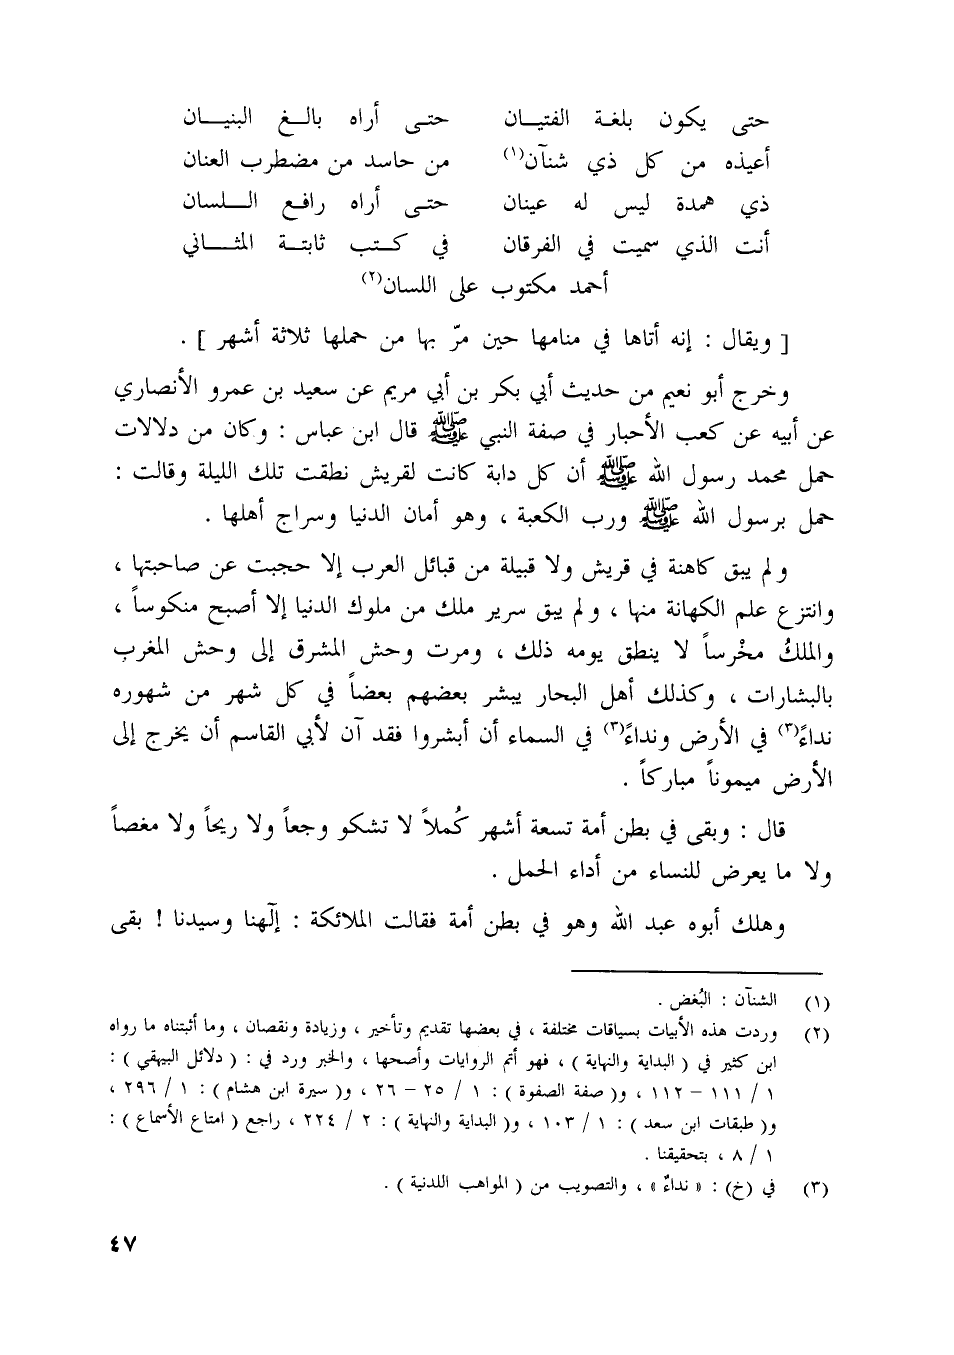 حتى يكون بلغة الفتيـان حتـى أراه بالـغ البنيـــان
أعيذه من كل ذي شنآن(١) من حاسد من مضطرب العنان
ذي همدة ليس له عينان حتـى أراه رافـع الـــلسان
أنت الذي سميت في الفرقان في كـتـب ثابتـة المثـــاني
أحمد مكتوب على اللسان(٢)
[ ويقال : إنه أتاها في منامها حين مرّ بها من حملها ثلاثة أشهر ] .
وخرج أبو نعيم من حديث أبي بكر بن أبي مريم عن سعيد بن عمرو الأنصاري
عن أبيه عن كعب الأحبار في صفة النبي ﷺ قال ابن عباس : وكان من دلالات
حمل محمد رسول الله ﷺ أن كل دابة كانت لقريش نطقت تلك الليلة وقالت :
حمل برسول الله ﷺ ورب الكعبة ، وهو أمان الدنيا وسراج أهلها .
ولم يبق كاهنة في قريش ولا قبيلة من قبائل العرب إلا حجبت عن صاحبتها ،
وانتزع علم الكهانة منها ، ولم يبق سرير ملك من ملوك الدنيا إلا أصبح منكوساً ،
والملكُ مخْرساً لا ينطق يومه ذلك ، ومرت وحش المشرق إلى وحش المغرب
بالبشارات ، وكذلك أهل البحار يبشر بعضهم بعضاً في كل شهر من شهوره
نداءً(٣) في الأرض ونداءً(٣) في السماء أن أبشروا فقد آن لأبي القاسم أن يخرج إلى
الأرض ميموناً مباركاً .
قال : وبقى في بطن أمة تسعة أشهر كُملاً لا تشكو وجعاً ولا ريحاً ولا مغصاً
ولا ما يعرض للنساء من أداء الحمل .
وهلك أبوه عبد الله وهو في بطن أمة فقالت الملائكة : إلٓهنا وسيدنا ! بقى
(١) الشنآن : البُغض .
(٢) وردت هذه الأبيات بسياقات مختلفة ، في بعضها تقديم وتأخير ، وزيادة ونقصان ، وما أثبتناه ما رواه
ابن كثير في ( البداية والنهاية ) ، فهو أتم الروايات وأصحها ، والخبر ورد في : ( دلائل البيهقي ) :
١ / ١١١ – ١١٢ ، و( صفة الصفوة ) : ١ / ٢٥ – ٢٦ ، و( سيرة ابن هشام ) : ١ / ٢٩٦ ،
و( طبقات ابن سعد ) : ١ / ١٠٣ ، و( البداية والنهاية ) : ٢ / ٢٢٤ ، راجع ( امتاع الأسماع ) :
١ / ٨ ، بتحقيقنا .
(٣) في (خ) : « نداءٌ » ، والتصويب من ( المواهب اللدنية ) .
٤٧